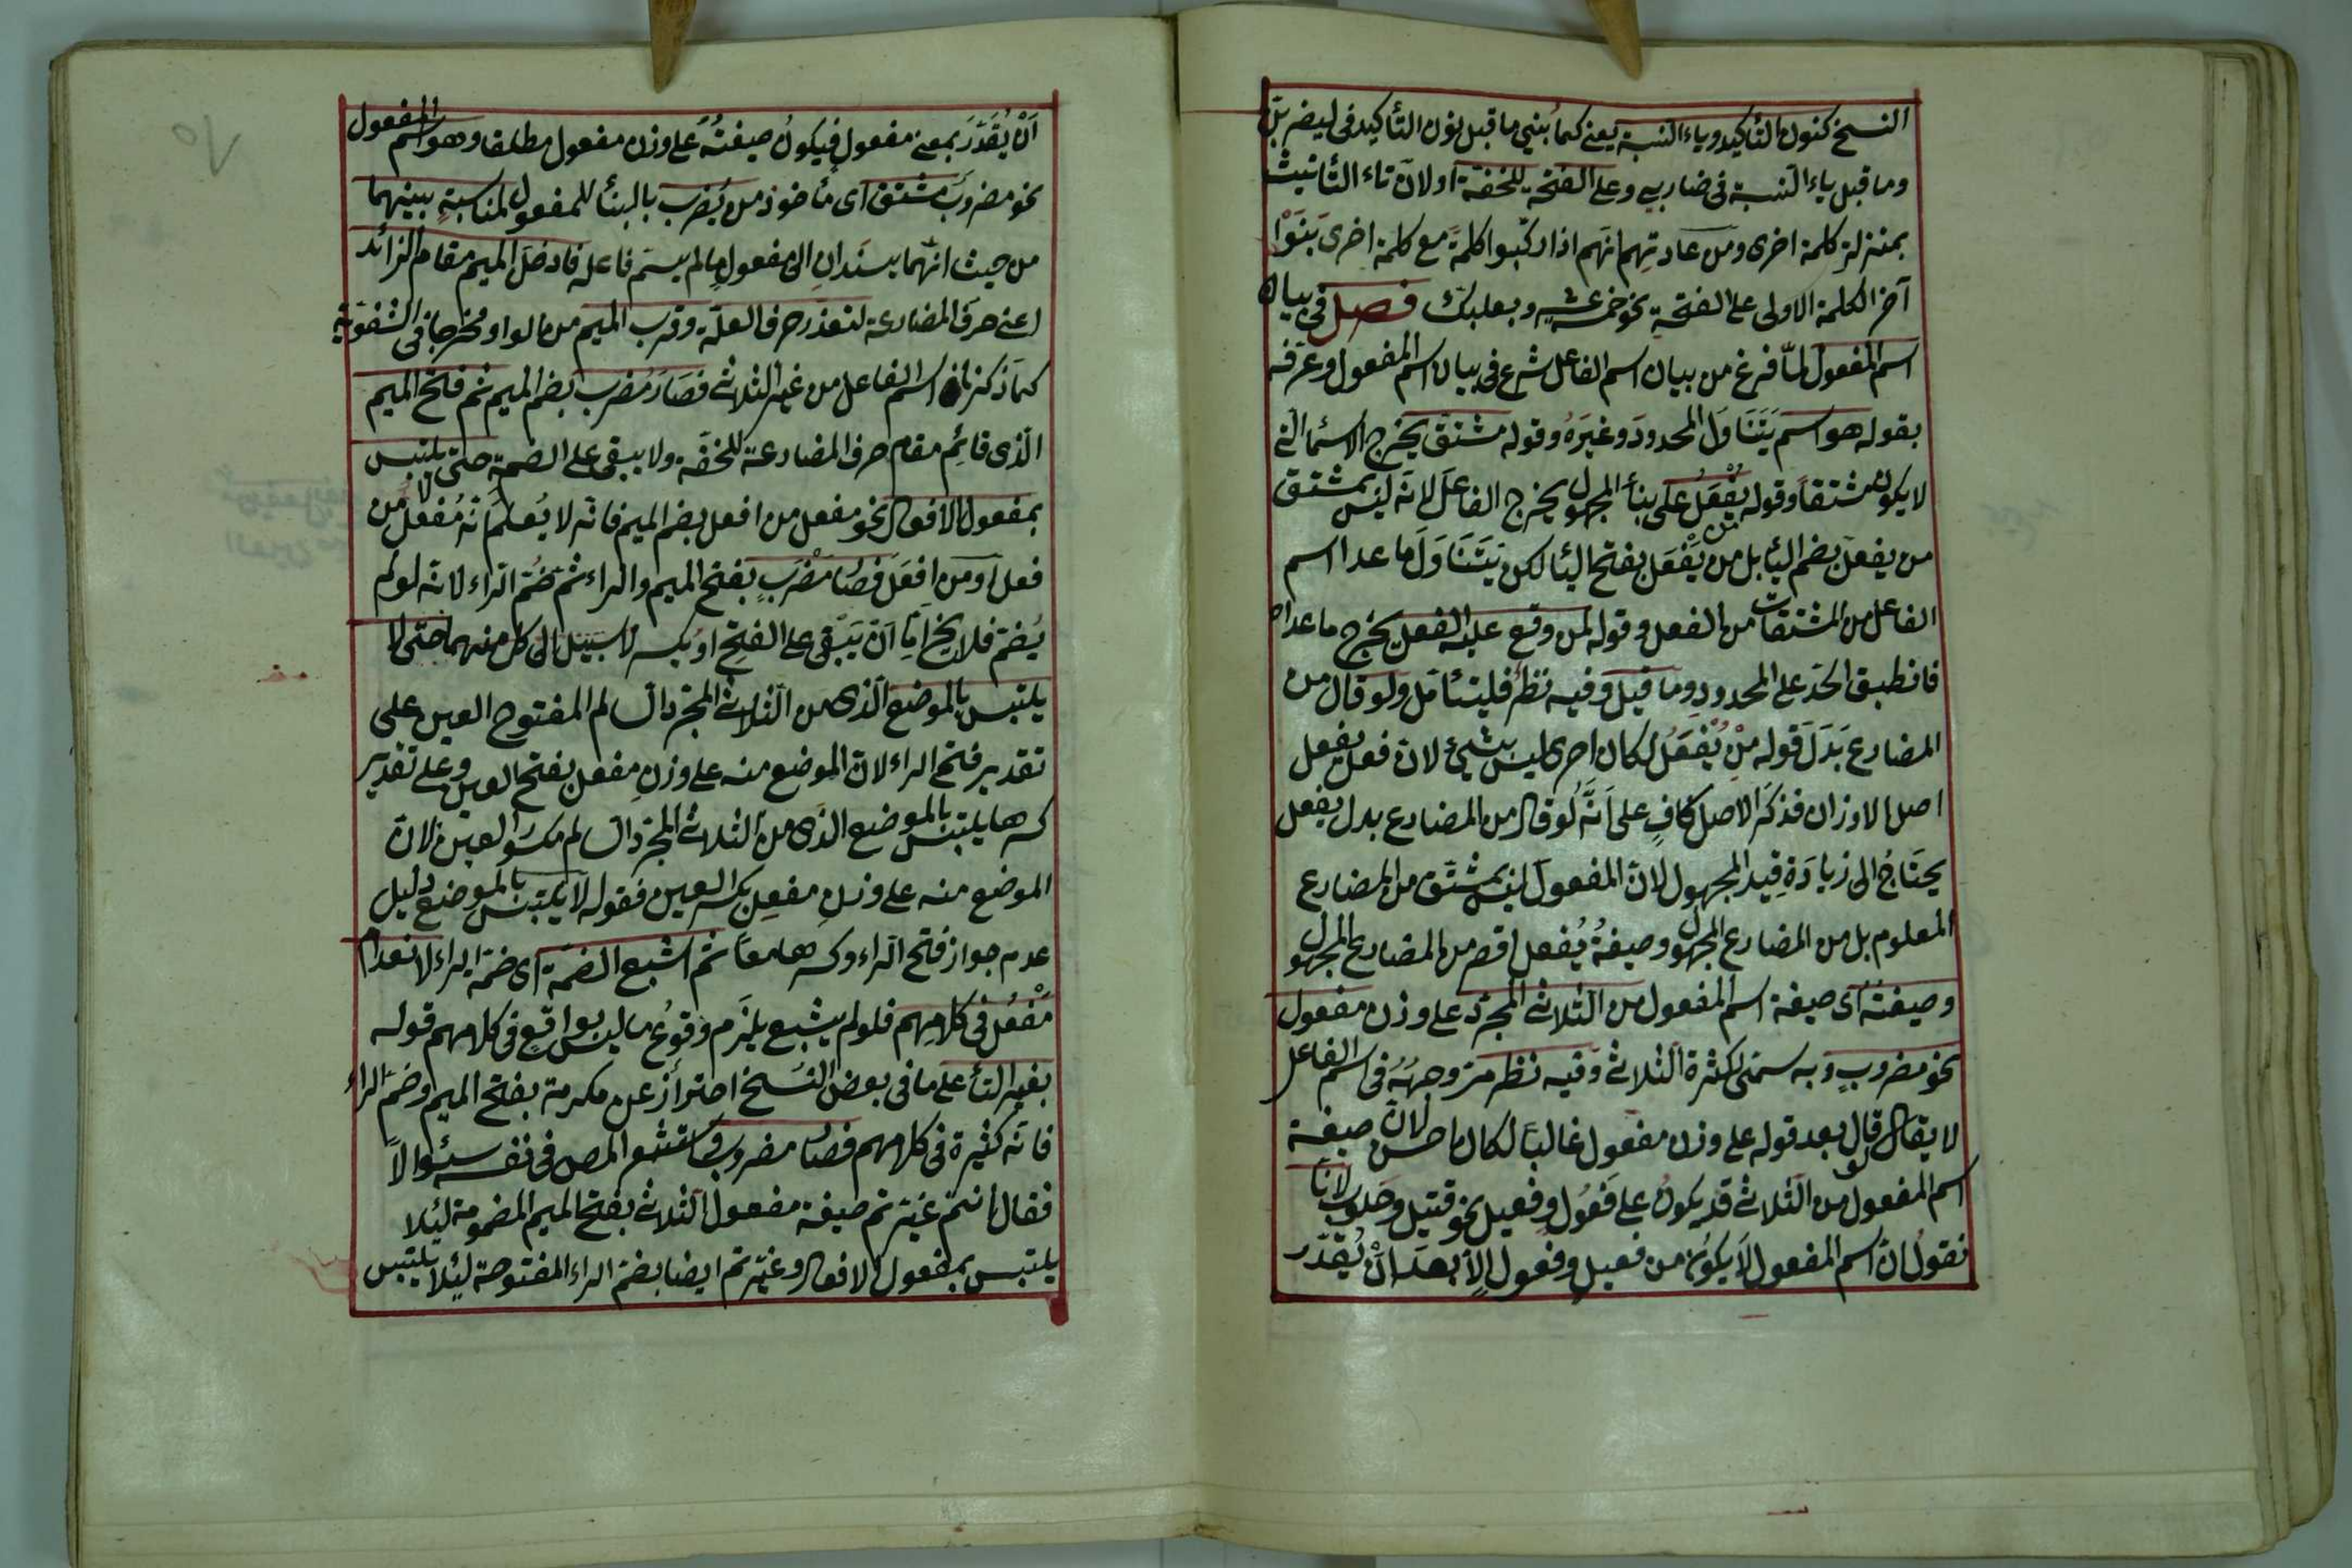 النسخ كنون التأكيد وياء النسبة يعني كما بُني ما قبل نون التأكيد في ليضربنّ
وما قبل ياء النسبة في ضاربي وعلى الفتحة للخفة او لان تاء التأنيث
بمنزلة كلمة اخرى ومن عادتهم انهم اذا ركّبوا كلمة مع كلمة اخرى بَنَوْا
آخر الكلمة الاولى على الفتحة نحو خمسة عشر وبعلبك فصل في بيان
اسم المفعول لمّا فرغ من بيان اسم الفاعل شرع في بيان اسم المفعول وعرّفه
بقوله هو اسم يَتَنَاوَل المحدودَ وغيرَه وقوله مشتق يخرج الاسماء التي
لا يكون مشتقا وقوله من يُفْعَلُ على بناء المجهول يخرج الفاعل لانه ليس بمشتق
من يفعل بضم الياء بل من يَفْعَل بفتح الياء لكن يَتَنَاوَلَ ما عدا اسم
الفاعل من المشتقات من الفعل وقوله لمن وقع عليه الفعل يخرج ما عداه
فانطبق الحدّ على المحدود وما قيل وفيه نظر فليتأمل ولو قال من
المضارع بَدَلَ قوله مِنْ يُفْعَلُ لكان احرى ليس بشيء لان فعل يفعل
اصل الاوزان فذكر الاصل كافٍ على انّه لو قال من المضارع بدل يفعل
يحتاجُ الى زيادة قيد المجهول لان المفعول ليس بمشتق من المضارع
المعلوم بل من المضارع المجهول وصيغةُ يُفعل اقصر من المضارع المجهول
وصيغتُه اى صيغة اسم المفعول من الثلاثي المجرّد على وزن مفعول
نحو مضروبٍ وبه سمّى لكثرة الثلاثي وفيه نظر مرّ وجهُهُ في اسم الفاعل
لا يقال لو قال بعد قوله على وزن مفعول غالبًا لكان احسن لان صيغة
اسم المفعول من الثلاثي قد يكون على فَعُول وفعيل نحو قتيل وحلوب لانّا
نقول ان اسم المفعول لا يكون من فعيل وفعول الا بعد انْ يُقدّر
اَنْ يُقَدَّرَ بمعنى مفعول فيكونُ صيغتُه على وزن مفعول مطلقا وهو اسم المفعول
نحو مضروبٌ مشتق اى مأخوذ من يُضرب بالبناء للمفعول لمناسبةٍ بينهما
من حيث انّهما يسندان الى مفعول ما لم يسمّ فاعله فادخل الميم مقام الزائد
اعني حرف المضارعة لتعذّر حرف العلّة وقرب الميم من الواو مخرجا في الشفوية
كما ذكرنا في اسم الفاعل من غير الثلاثي فصار مُضرب بضم الميم ثم فتح الميم
الّذي قائم مقام حرف المضارعة للخفّة ولا يبقى على الضمة حتى لا يلتبس
بمفعول الافعال نحو مفعل من افعل بضم الميم فانّه لا يُعلَمُ انّه مُفعل من
فعل او من اِفعَل فصار مَضْرَبٍ بفتح الميم والراء ثمّ ضُمّ الراء لانّه لو لم
يُضمّ فلا يخ اما ان يَبْقى على الفتح او يكسر لا سبيل الى كل منهما حتى لا
يلتبس بالموضع الّذي من الثلاثي المجرد السالم المفتوح العين على
تقدير فتح الراء لان الموضع منه على وزنِ مفعل بفتح العين وعلى تقدير
كسرها يلتبس بالموضع الذي من الثلاثي المجرد السالم مكسور العين لانّ
الموضع منه على وزن مفعِل بكسر العين فقوله لا يلتبس بالموضع دليل
عدم جواز فتح الراء وكسرها معًا ثم اشبع الضمّة اى ضمّة الراء لانعدام
مَفْعُل في كلامهم فلو لم يشبع يلزم وقوعُ ما ليس بواقع في كلامهم قوله
بغير التاء على ما في بعض النسخ احتراز عن مكرمة بفتح الميم وضمّ الراء
فانّه كثيرة في كلامهم فصار مضروب واستشع المص في نفسه سئوالًا
فقال انتم غيّرتم صيغة مفعول الثلاثي بفتح الميم المضمومة لئلا
يلتبس بمفعول الافعال وغيّرتم ايضا بضمّ الراء المفتوحة لئلا يلتبس